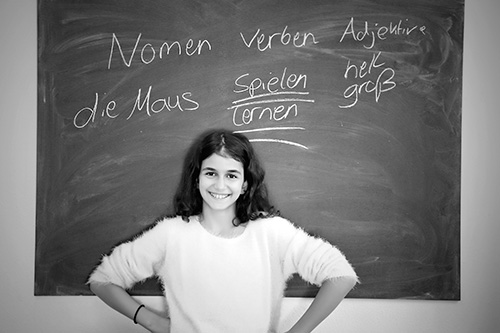 Nomen Verben Adjektive
die Maus Spielen hell
lernen groß